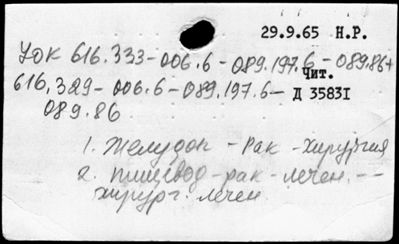 29.9.65 Н.Р.
УДК 616.333-006.6-089.197.6-089.86+
Чит.
616.329-006.6-089.197.6-
Д 35831
089.86
1. Желудок - Рак - Хирургия
2. Пищевод - рак - лечен. --
хирург. лечен.